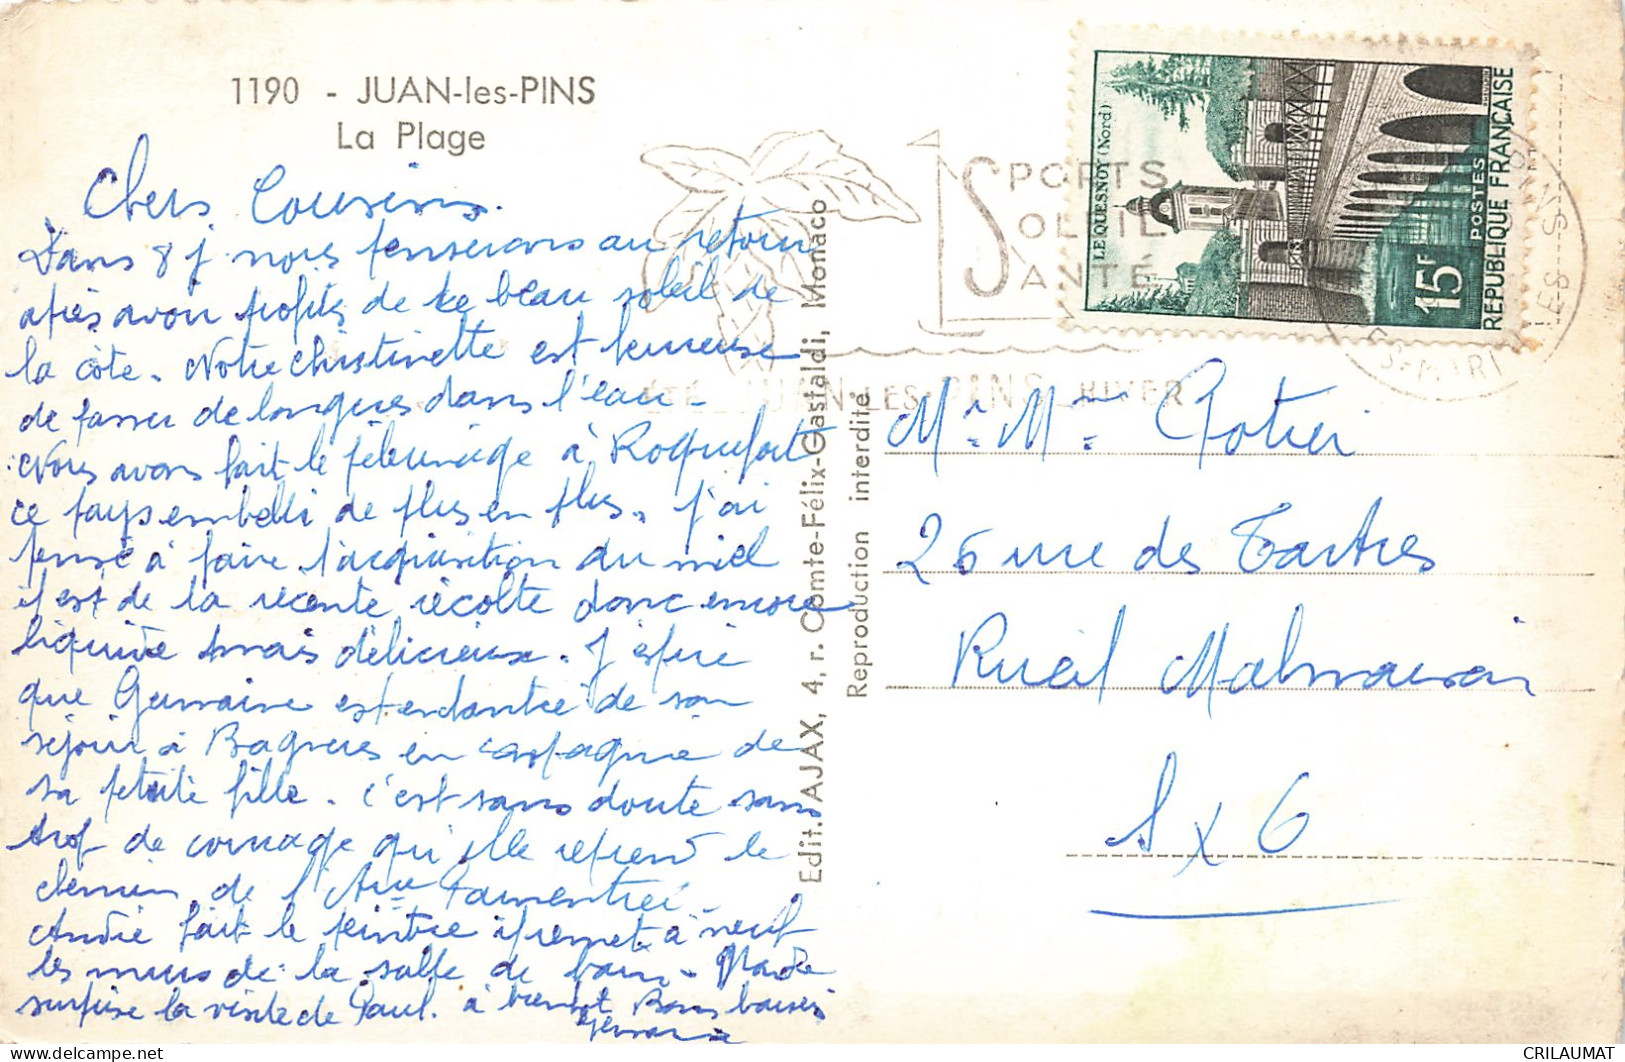 1190 - JUAN-les-PINS
La Plage
Chers Cousins.
Dans 8 j nous penserons au retour
après avoir profités de ce beau soleil de
la côte. Notre Christinette est heureuse
de passer de longues dans l'eau-
Nous avons fait le pélerinage à Roquefort
ce pays embelli de plus en plus. J'ai
pensé à faire l'acquisition du miel
il est de la récente récolte donc encore
liquide mais délicieux. J'espère
que Germaine est enchantée de son
séjour à Bagneres en compagnie de
sa petite fille. C'est sans doute sans
trop de courage qu'elle reprend le
chemin de l'Avue Parmentier-
André fait le peintre il remet à neuf
les murs de la salle de bain-
surprise la visite de Paul. à bientôt Bons baisers
Edit. AJAX, 4, r. Comte-Félix-Gastaldi, Monaco
Reproduction interdite
SPORTS
SOLEIL
SANTÉ
ÉTÉ JUAN-LES-PINS HIVER
LE QUESNOY (Nord)
15F
POSTES
REPUBLIQUE FRANÇAISE
Mr. Mme. Potier
26 rue des Tartres
Rueil Malmaison
S x 6
CRILAUMAT